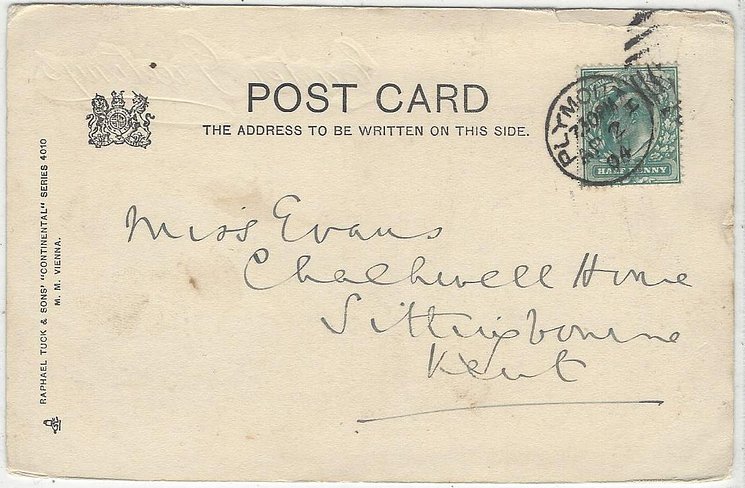 POST CARD
THE ADDRESS TO BE WRITTEN ON THIS SIDE.
RAPHAEL TUCK & SONS' "CONTINENTAL" SERIES 4010
M. M. VIENNA.
PLYMO
2
04
HALF PENNY
Miss Evans
Chalkwell House
Sittingbourne
Kent